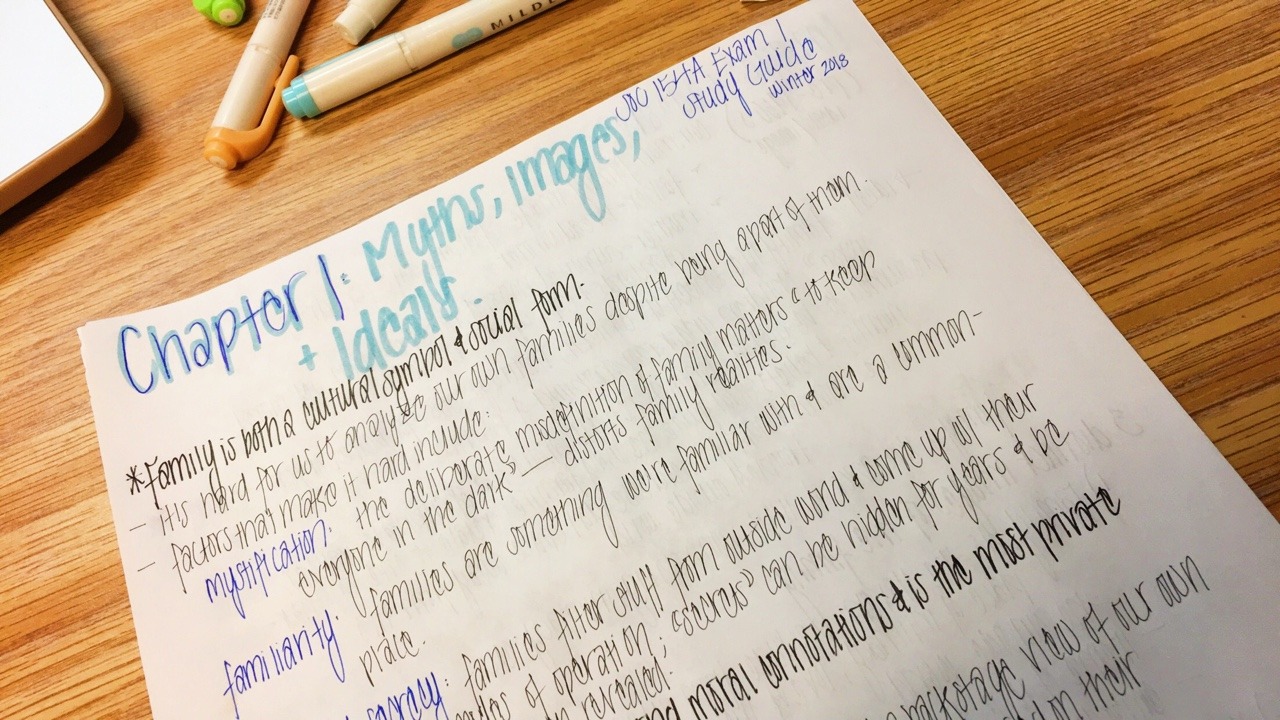 MILDL
SOC 154A Exam 1
Study Guide
Winter 2018
Chapter 1: Myths, Images,
+ Ideals.
*Family is both a cultural symbol & social form.
- it is hard for us to analyze our own families despite being apart of them.
- factors that make it hard include:
mystification: the deliberate misdefinition of family matters "to keep
everyone in the dark" — distorts family realities.
familiarity: families are something we're familiar with & are a common-
place.
secrecy: families filter stuff from outside world & come up w/ their
rules of operation; "secrets" can be hidden for years & be
revealed.
and moral connotations & is the most private
backstage view of our own
on their